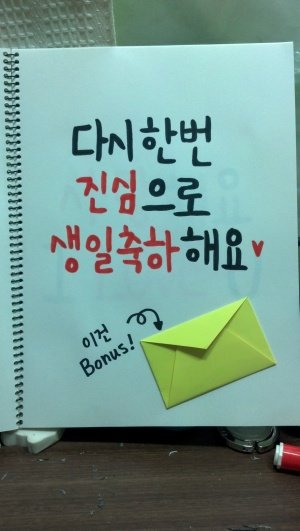 다시한번
진심으로
생일축하해요♥
이건
Bonus!